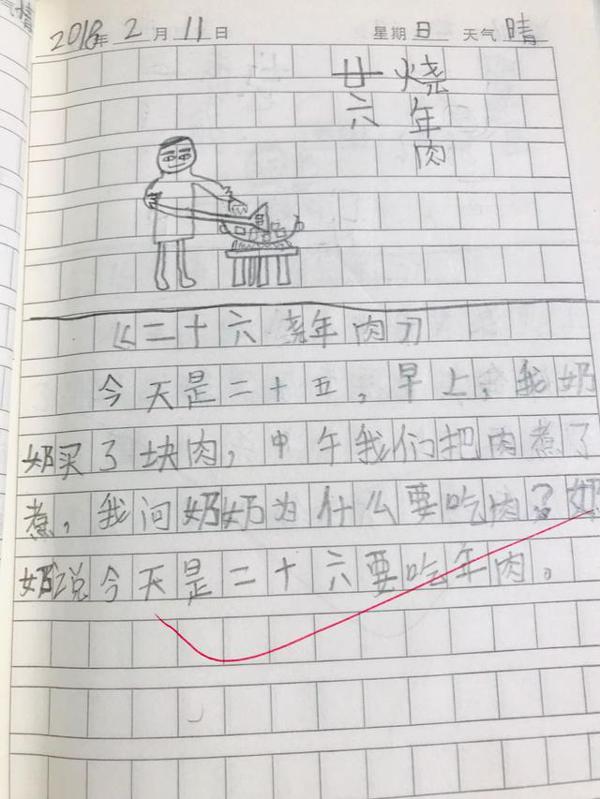 2018年2月11日 星期日 天气晴
廿六
烧年肉
《二十六烧年肉》
今天是二十五,早上,我奶
奶买了块肉,中午我们把肉煮了
煮,我问奶奶为什么要吃肉?奶
奶说今天是二十六要吃年肉。